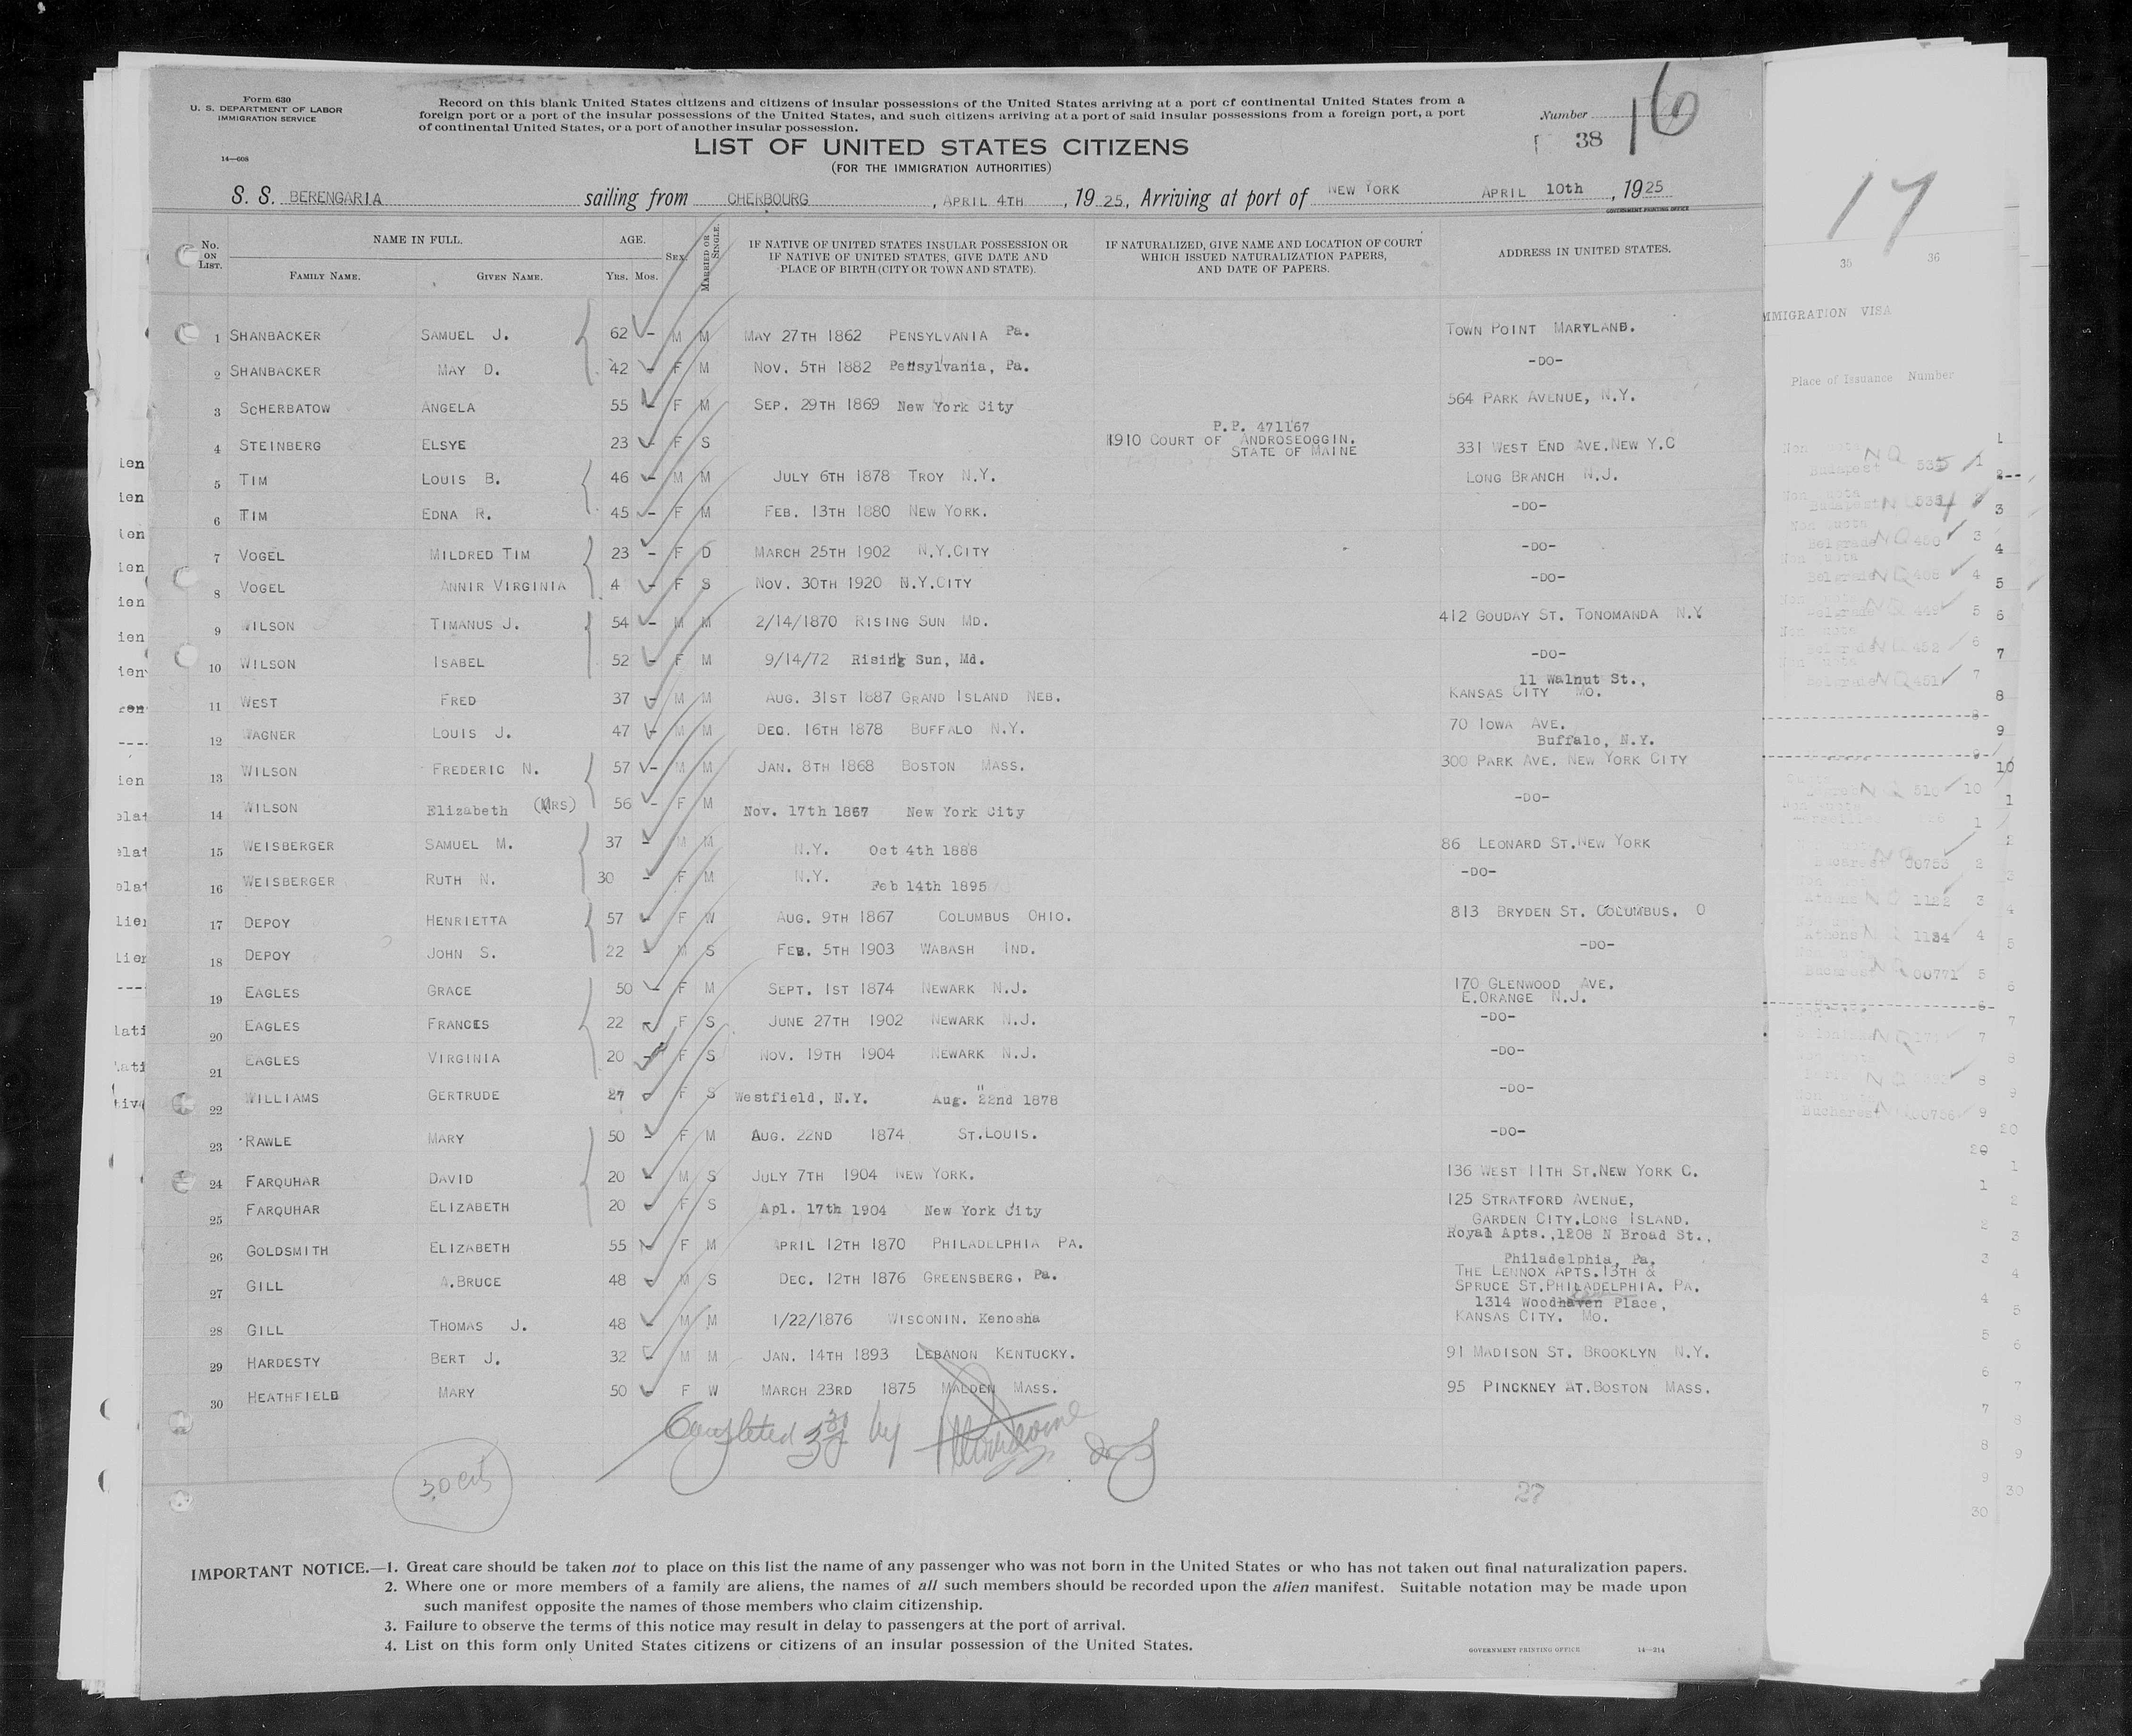 Form 630
U. S. DEPARTMENT OF LABOR
IMMIGRATION SERVICE
14—608
Record on this blank United States citizens and citizens of insular possessions of the United States arriving at a port of continental United States from a
foreign port or a port of the insular possessions of the United States, and such citizens arriving at a port of said insular possessions from a foreign port, a port
of continental United States, or a port of another insular possession.
Number
38
16
LIST OF UNITED STATES CITIZENS
(FOR THE IMMIGRATION AUTHORITIES)
S. S. BERENGARIA sailing from CHERBOURG, APRIL 4TH, 1925, Arriving at port of NEW YORK APRIL 10th, 1925
GOVERNMENT PRINTING OFFICE
No. ON LIST. NAME IN FULL. FAMILY NAME. GIVEN NAME. AGE. Yrs. Mos. SEX. MARRIED OR SINGLE. IF NATIVE OF UNITED STATES INSULAR POSSESSION OR IF NATIVE OF UNITED STATES, GIVE DATE AND PLACE OF BIRTH (CITY OR TOWN AND STATE). IF NATURALIZED, GIVE NAME AND LOCATION OF COURT WHICH ISSUED NATURALIZATION PAPERS, AND DATE OF PAPERS. ADDRESS IN UNITED STATES.
1 SHANBACKER SAMUEL J. 62 – M M MAY 27TH 1862 PENSYLVANIA Pa. TOWN POINT MARYLAND.
2 SHANBACKER MAY D. 42 – F M NOV. 5TH 1882 Pennsylvania, Pa. -DO-
3 SCHERBATOW ANGELA 55 – F M SEP. 29TH 1869 New York City 564 PARK AVENUE, N.Y.
4 STEINBERG ELSYE 23 – F S P.P. 471167
1910 COURT OF ANDROSEOGGIN. STATE OF MAINE 331 WEST END AVE.NEW Y.C
5 TIM LOUIS B. 46 – M M JULY 6TH 1878 TROY N.Y. LONG BRANCH N.J.
6 TIM EDNA R. 45 – F M FEB. 13TH 1880 NEW YORK. -DO-
7 VOGEL MILDRED TIM 23 – F D MARCH 25TH 1902 N.Y.CITY -DO-
8 VOGEL ANNIR VIRGINIA 4 – F S NOV. 30TH 1920 N.Y.CITY -DO-
9 WILSON TIMANUS J. 54 – M M 2/14/1870 RISING SUN MD. 412 GOUDAY ST. TONOMANDA N.Y
10 WILSON ISABEL 52 – F M 9/14/72 Rising Sun, Md. -DO-
11 WEST FRED 37 – M M AUG. 31ST 1887 GRAND ISLAND NEB. 11 Walnut St.,
KANSAS CITY MO.
12 WAGNER LOUIS J. 47 – M M DEC. 16TH 1878 BUFFALO N.Y. 70 IOWA AVE.
Buffalo, N.Y.
13 WILSON FREDERIC N. 57 – M M JAN. 8TH 1868 BOSTON MASS. 300 PARK AVE. NEW YORK CITY
14 WILSON Elizabeth (MRS) 56 – F M Nov. 17th 1867 New York City -DO-
15 WEISBERGER SAMUEL M. 37 – M M N.Y. Oct 4th 1888 86 LEONARD ST.NEW YORK
16 WEISBERGER RUTH N. 30 – F M N.Y. Feb 14th 1895 -DO-
17 DEPOY HENRIETTA 57 – F W AUG. 9TH 1867 COLUMBUS OHIO. 813 BRYDEN ST. COLUMBUS. O
18 DEPOY JOHN S. 22 – M S FEB. 5TH 1903 WABASH IND. -DO-
19 EAGLES GRACE 50 – F M SEPT. 1ST 1874 NEWARK N.J. 170 GLENWOOD AVE.
E.ORANGE N.J.
20 EAGLES FRANCES 22 – F S JUNE 27TH 1902 NEWARK N.J. -DO-
21 EAGLES VIRGINIA 20 – F S NOV. 19TH 1904 NEWARK N.J. -DO-
22 WILLIAMS GERTRUDE 27 – F S Westfield, N.Y. Aug. 22nd 1878 -DO-
23 RAWLE MARY 50 – F M AUG. 22ND 1874 ST.LOUIS. -DO-
24 FARQUHAR DAVID 20 – M S JULY 7TH 1904 NEW YORK. 136 WEST 11TH ST.NEW YORK C.
25 FARQUHAR ELIZABETH 20 – F S Apl. 17th 1904 New York City 125 STRATFORD AVENUE,
GARDEN CITY.LONG ISLAND.
26 GOLDSMITH ELIZABETH 55 – F M APRIL 12TH 1870 PHILADELPHIA PA. Royal Apts.,1208 N Broad St.,
Philadelphia, Pa.
27 GILL A.BRUCE 48 – M S DEC. 12TH 1876 GREENSBERG. Pa. THE LENNOX APTS.13TH &
SPRUCE ST.PHILADELPHIA. PA.
28 GILL THOMAS J. 48 – M M 1/22/1876 WISCONIN. Kenosha 1314 Woodhaven Place,
KANSAS CITY. MO.
29 HARDESTY BERT J. 32 – M M JAN. 14TH 1893 LEBANON KENTUCKY. 91 MADISON ST. BROOKLYN N.Y.
30 HEATHFIELD MARY 50 – F W MARCH 23RD 1875 MALDEN MASS. 95 PINCKNEY AT.BOSTON MASS.
Completed 30 by
30 cits
27
IMPORTANT NOTICE.—1. Great care should be taken not to place on this list the name of any passenger who was not born in the United States or who has not taken out final naturalization papers.
2. Where one or more members of a family are aliens, the names of all such members should be recorded upon the alien manifest. Suitable notation may be made upon
such manifest opposite the names of those members who claim citizenship.
3. Failure to observe the terms of this notice may result in delay to passengers at the port of arrival.
4. List on this form only United States citizens or citizens of an insular possession of the United States.
GOVERNMENT PRINTING OFFICE 14—214
17
35 36
IMMIGRATION VISA
Place of Issuance Number